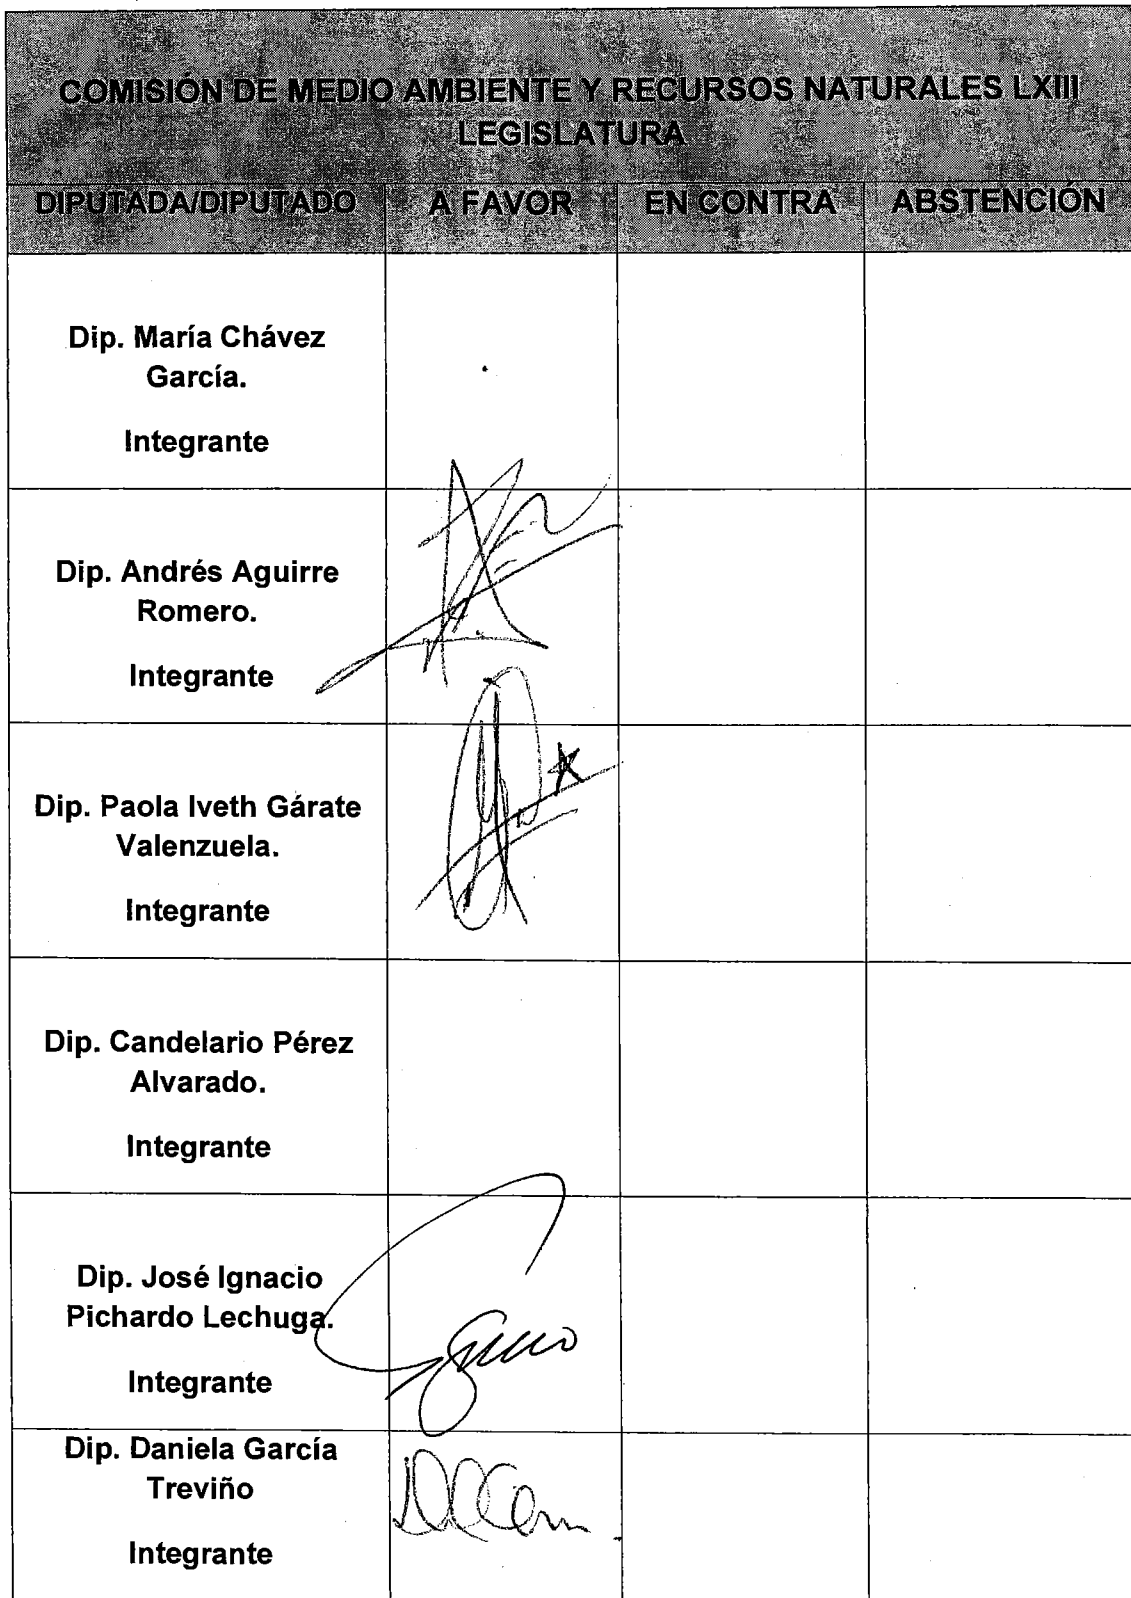 COMISIÓN DE MEDIO AMBIENTE Y RECURSOS NATURALES LXIII
LEGISLATURA
DIPUTADA/DIPUTADO A FAVOR EN CONTRA ABSTENCIÓN
Dip. María Chávez
García.
Integrante
Dip. Andrés Aguirre
Romero.
Integrante
Dip. Paola Iveth Gárate
Valenzuela.
Integrante
Dip. Candelario Pérez
Alvarado.
Integrante
Dip. José Ignacio
Pichardo Lechuga.
Integrante
Dip. Daniela García
Treviño
Integrante